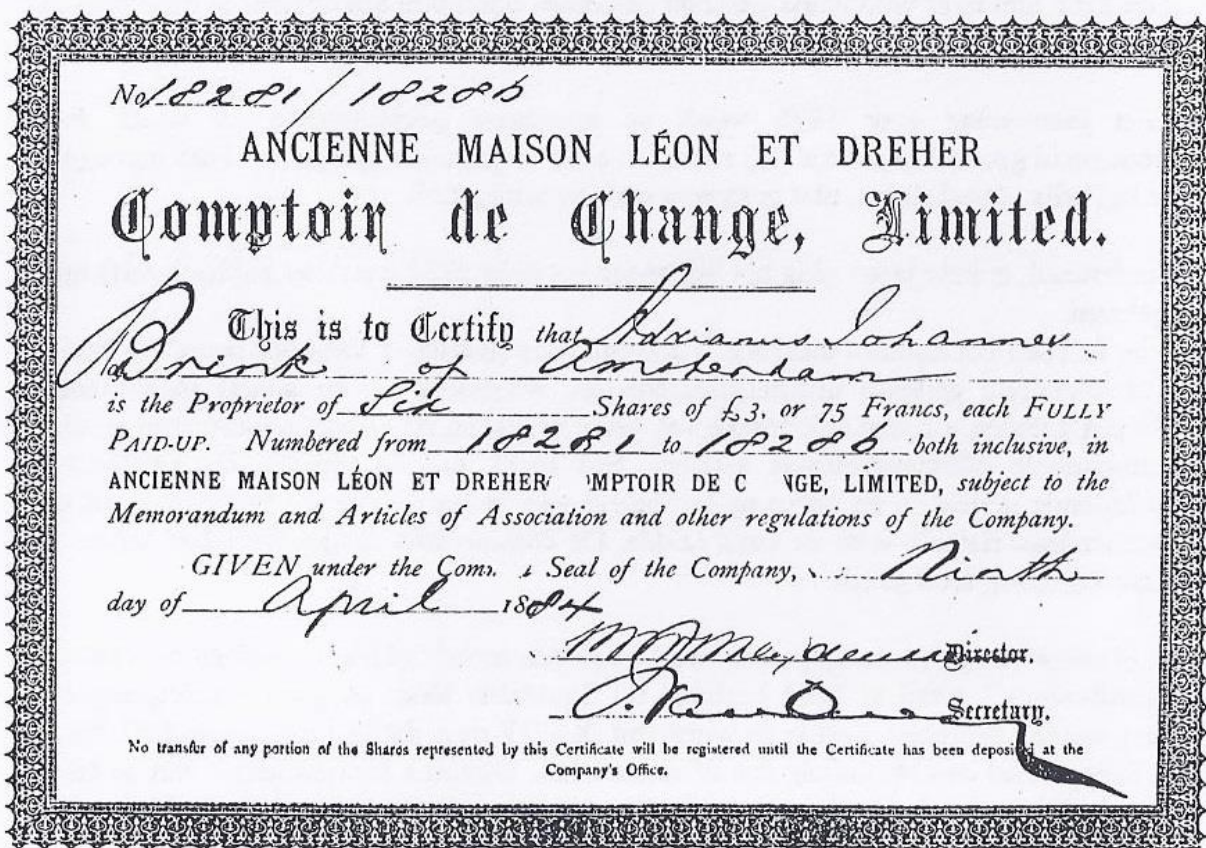 No 18281/18286
ANCIENNE MAISON LÉON ET DREHER
Comptoir de Change, Limited.
This is to Certify that Adrianus Johannes
Brink of Amsterdam
is the Proprietor of Six Shares of £3, or 75 Francs, each FULLY
PAID-UP. Numbered from 18281 to 18286 both inclusive, in
ANCIENNE MAISON LÉON ET DREHER MPTOIR DE C NGE, LIMITED, subject to the
Memorandum and Articles of Association and other regulations of the Company.
GIVEN under the Com Seal of the Company, Ninth
day of April 1884
Director.
Secretary.
No transfer of any portion of the Shares represented by this Certificate will be registered until the Certificate has been deposi at the
Company's Office.